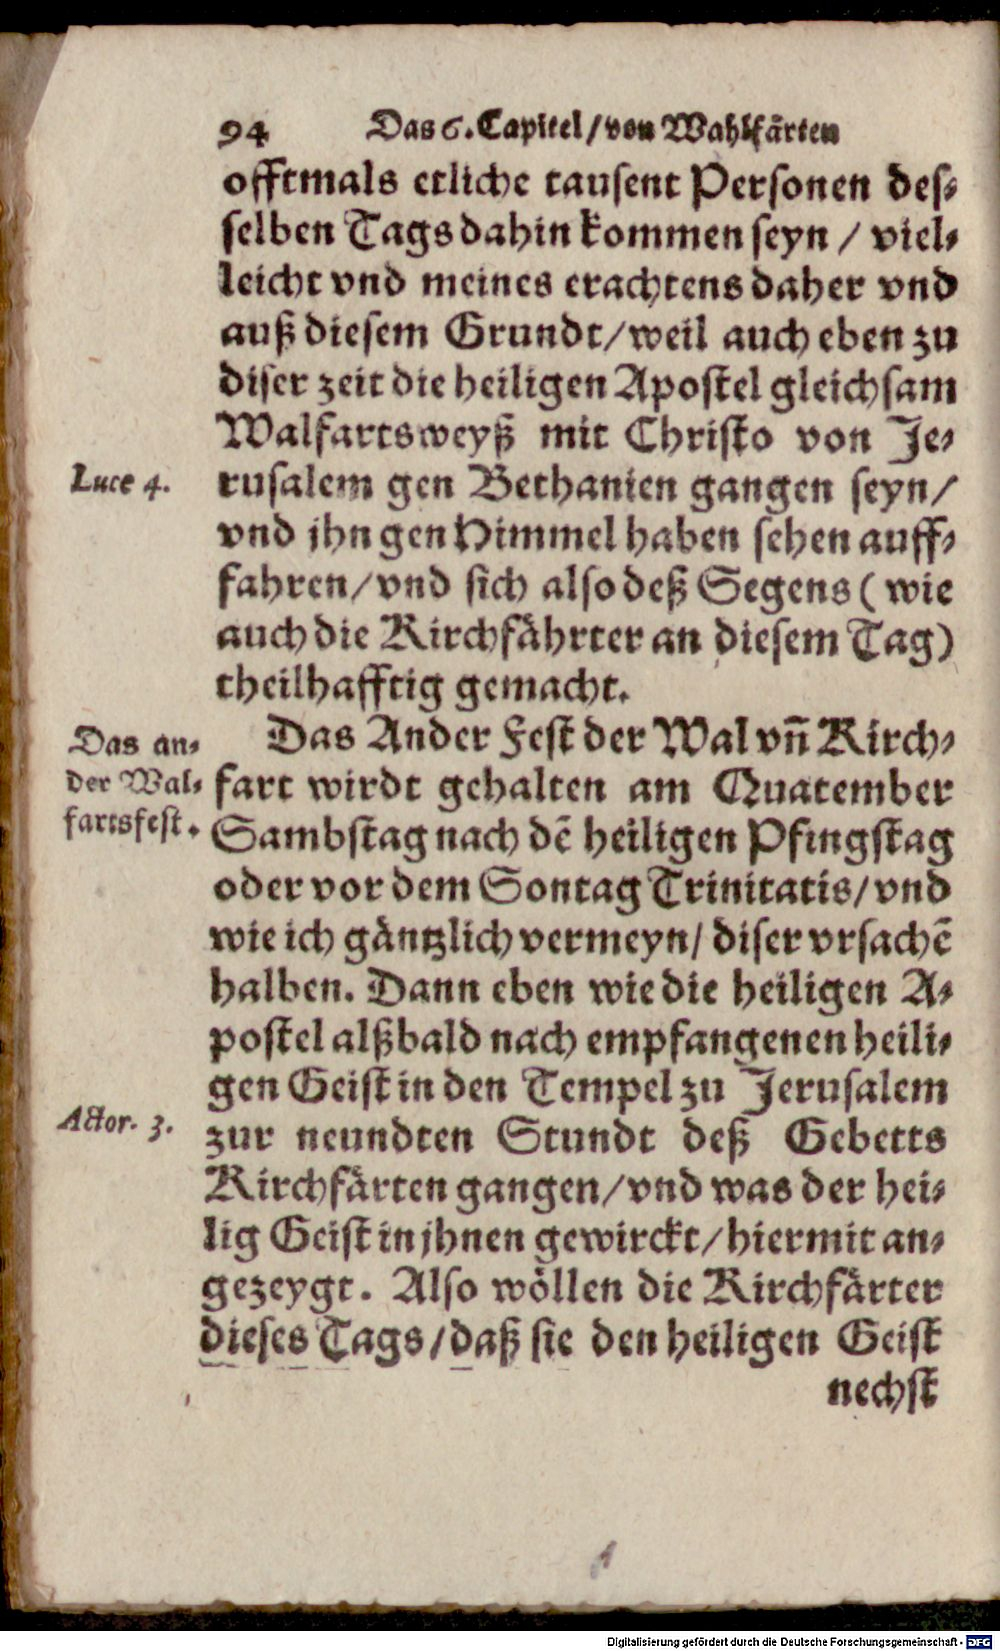 94 Das 6. Capitel / von Wahlfärten
offtmals etliche tausent Personen des⸗
selben Tags dahin kommen seyn / viel⸗
leicht vnd meines erachtens daher vnd
auß diesem Grundt / weil auch eben zu
diser zeit die heiligen Apostel gleichsam
Walfartsweyß mit Christo von Je⸗
Luce 4.
rusalem gen Bethanien gangen seyn /
vnd jhn gen Himmel haben sehen auff⸗
fahren / vnd sich also deß Segens ( wie
auch die Kirchfährter an diesem Tag )
theilhafftig gemacht.
Das an⸗
der Wal⸗
fartsfest.
Das Ander Fest der Wal vñ Kirch⸗
fart wirdt gehalten am Quatember
Sambstag nach dẽ heiligen Pfingstag
oder vor dem Sontag Trinitatis / vnd
wie ich gäntzlich vermeyn / diser vrsachẽ
halben. Dann eben wie die heiligen A⸗
postel alßbald nach empfangenen heili⸗
gen Geist in den Tempel zu Jerusalem
Actor. 3.
zur neundten Stundt deß Gebetts
Kirchfärten gangen / vnd was der hei⸗
lig Geist in jhnen gewirckt / hiermit an⸗
gezeygt. Also wöllen die Kirchfärter
dieses Tags / daß sie den heiligen Geist
nechst
Digitalisierung gefördert durch die Deutsche Forschungsgemeinschaft - DFG